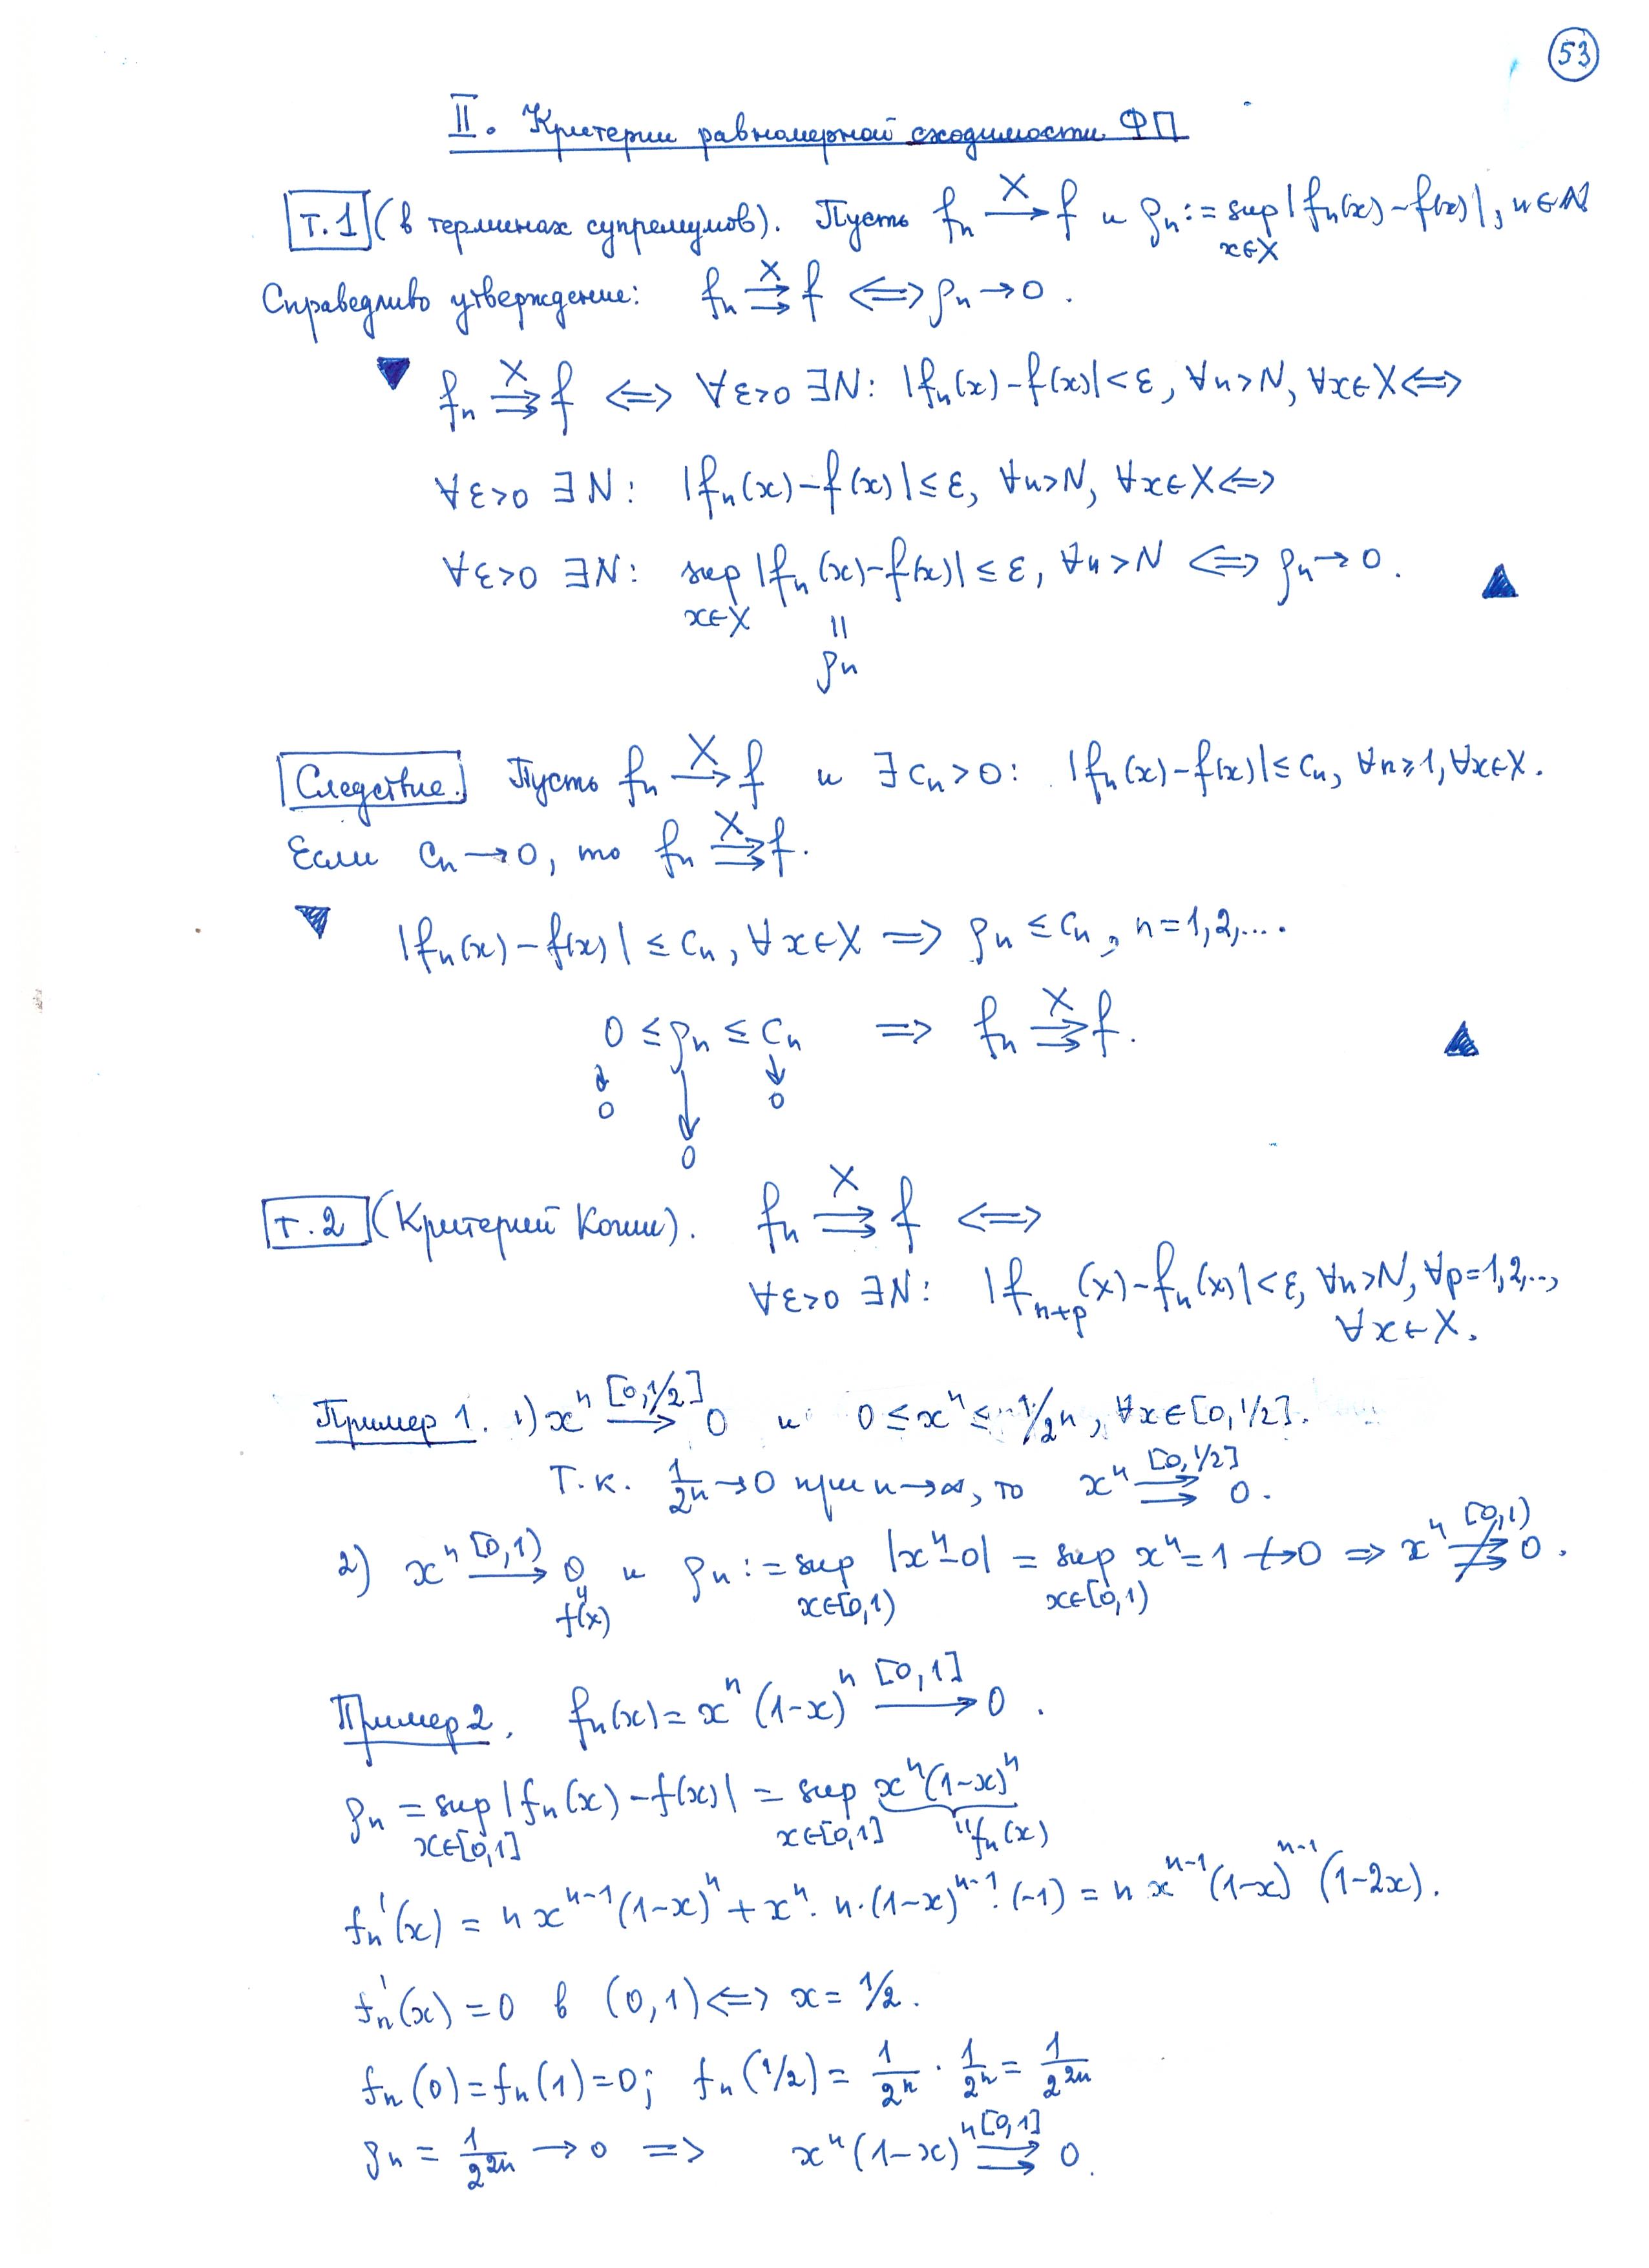 53
II. Критерии равномерной сходимости ФП
Т.1 (в терминах супремумов). Пусть fₙ —X→ f и ρₙ := sup_{x∈X} |fₙ(x) – f(x)|, n∈N
Справедливо утверждение: fₙ ⇉^X f ⟺ ρₙ → 0.
▼ fₙ ⇉^X f ⟺ ∀ε>0 ∃N: |fₙ(x) – f(x)| < ε, ∀n>N, ∀x∈X ⟺
∀ε>0 ∃N: |fₙ(x) – f(x)| ≤ ε, ∀n>N, ∀x∈X ⟺
∀ε>0 ∃N: sup_{x∈X} |fₙ(x) – f(x)| ≤ ε, ∀n>N ⟺ ρₙ → 0. ▲
||
ρₙ
Следствие. Пусть fₙ —X→ f и ∃cₙ>0: |fₙ(x) – f(x)| ≤ cₙ, ∀n≥1, ∀x∈X.
Если cₙ → 0, то fₙ ⇉^X f.
▼ |fₙ(x) – f(x)| ≤ cₙ, ∀x∈X ⟹ ρₙ ≤ cₙ, n=1,2,....
0 ≤ ρₙ ≤ cₙ ⟹ fₙ ⇉^X f. ▲
↓ ↓ ↓
0 0 0
Т.2 (Критерий Коши). fₙ ⇉^X f ⟺
∀ε>0 ∃N: |f_{n+p}(x) – fₙ(x)| < ε, ∀n>N, ∀p=1,2,..,
∀x∈X.
Пример 1. 1) xⁿ —[0,1/2]→ 0 и 0 ≤ xⁿ ≤ 1/2ⁿ, ∀x∈[0,1/2].
Т.к. 1/2ⁿ → 0 при n→∞, то xⁿ ⇉^{[0,1/2]} 0.
2) xⁿ —[0,1)→ 0 и ρₙ := sup_{x∈[0,1)} |xⁿ–0| = sup_{x∈[0,1)} xⁿ = 1 ↛ 0 ⟹ xⁿ ⇉̸^{[0,1)} 0.
||
f(x)
Пример 2. fₙ(x) = xⁿ(1–x)ⁿ —[0,1]→ 0.
ρₙ = sup_{x∈[0,1]} |fₙ(x) – f(x)| = sup_{x∈[0,1]} xⁿ(1–x)ⁿ
|| fₙ(x)
fₙ'(x) = n xⁿ⁻¹(1–x)ⁿ + xⁿ·n·(1–x)ⁿ⁻¹·(–1) = n xⁿ⁻¹(1–x)ⁿ⁻¹(1–2x).
fₙ'(x) = 0 в (0,1) ⟺ x = 1/2.
fₙ(0) = fₙ(1) = 0; fₙ(1/2) = 1/2ⁿ · 1/2ⁿ = 1/2²ⁿ
ρₙ = 1/2²ⁿ → 0 ⟹ xⁿ(1–x)ⁿ ⇉^{[0,1]} 0.